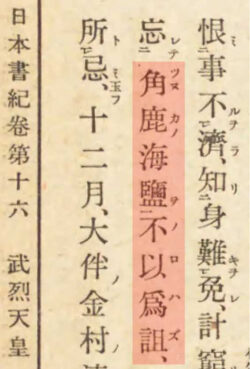 恨事不濟、知身難免、計窮
忘角鹿海鹽不以爲詛、
所忌、十二月、大伴金村
日本書紀卷第十六 武烈天皇